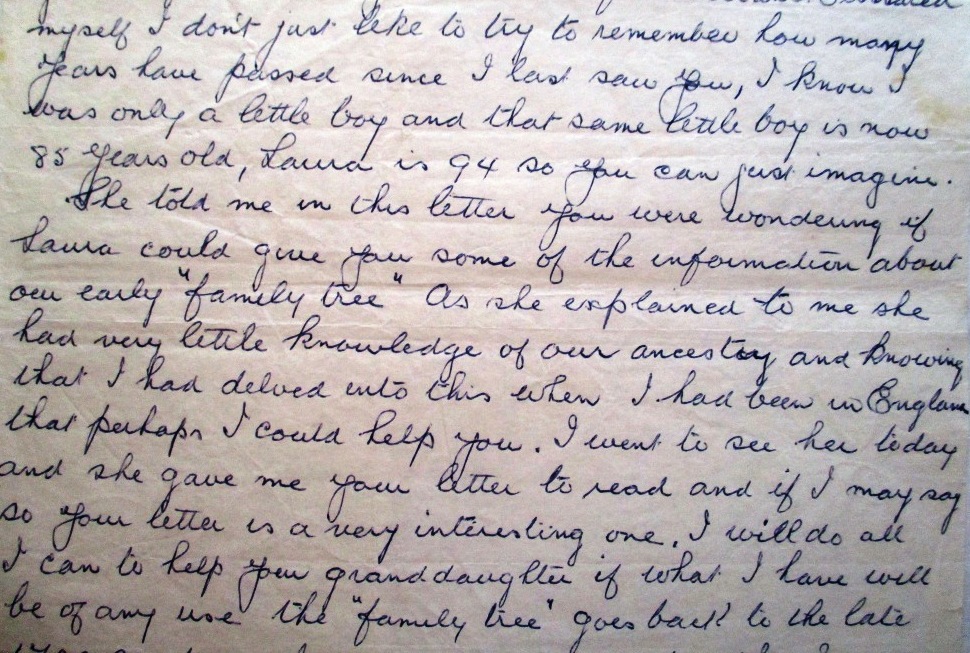 myself I don't just like to try to remember how many
years have passed since I last saw you, I know I
was only a little boy and that same little boy is now
85 years old, Laura is 94 so you can just imagine.
She told me in this letter you were wondering if
Laura could give you some of the information about
our early "family tree" As she explained to me she
had very little knowledge of our ancestry and knowing
that I had delved into this when I had been in England
that perhaps I could help you. I went to see her today
and she gave me your letter to read and if I may say
so your letter is a very interesting one. I will do all
I can to help you granddaughter if what I have will
be of any use the "family tree" goes back to the late